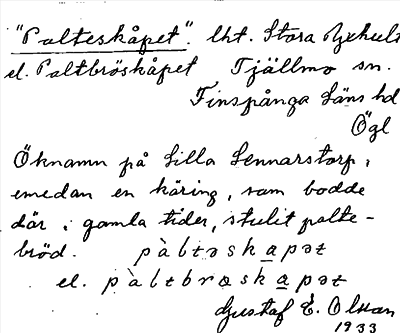 "Palteskåpet". lht. Stora Yxhult
el. Paltbröskåpet Tjällmo sn.
Finspånga Läns hd
Ögl
Öknamn på Lilla Lennarstorp,
emedan en käring, som bodde
där i gamla tider, stulit palte-
bröd. pàltəskapət
el. pàltbrøskapət
Gustaf E. Olsson
1933